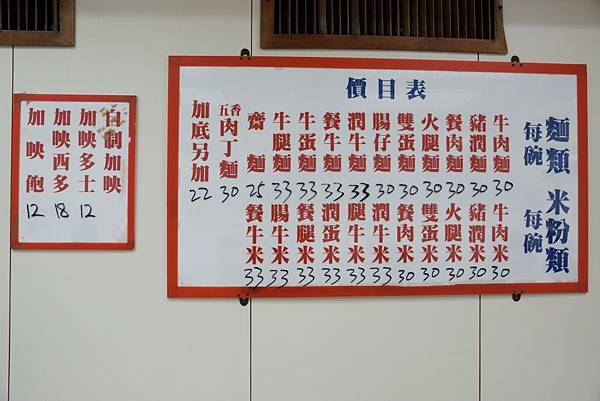 價目表
麵類 每碗
牛肉麵 30
豬潤麵 30
餐肉麵 30
火腿麵 30
雙蛋麵 30
腸仔麵 30
潤牛麵 33
餐牛麵 33
牛蛋麵 33
牛腿麵 33
齋麵 25
五香肉丁麵 30
加底另加 22
米粉類 每碗
牛肉米 30
豬潤米 30
火腿米 30
雙蛋米 30
餐肉米 30
潤牛米 33
腿牛米 33
潤蛋米 33
餐腿米 33
腸牛米 33
餐牛米 33
自制加映
加映多士 12
加映西多 18
加映飽 12